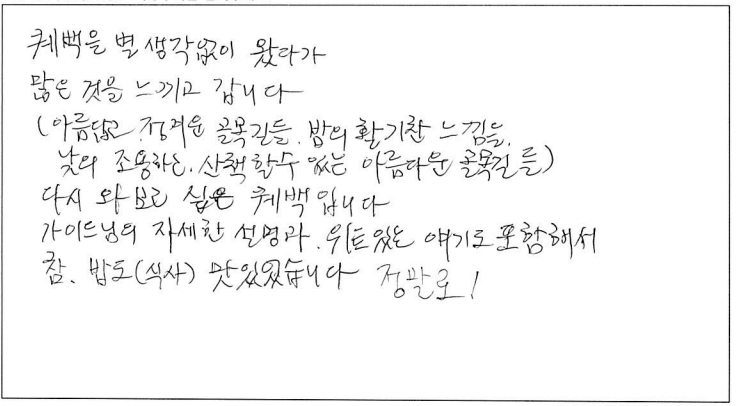 퀘백을 별 생각없이 왔다가
많은 것을 느끼고 갑니다
(아름답고 정겨운 골목길들. 밤의 활기찬 느낌을.
낮의 조용하는. 산책할수 있는 아름다운 골목길들)
다시 와 보고 싶은 퀘백입니다
가이드님의 자세한 설명과. 위트있는 얘기도 포함해서
참. 밥도(식사) 맛있었습니다 정말로!